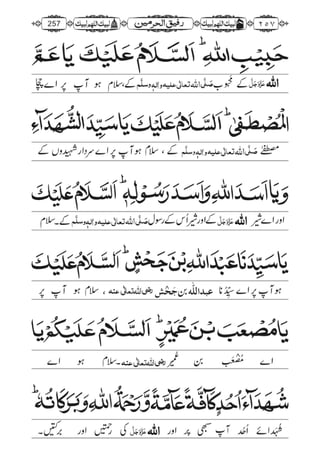 ٢٥٧ لبیک اللھم لبیک رفیق الحرمین لبیک اللھم لبیک 257
حَبِيْبِ اللهِ ؕ اَلسَّلَامُ عَلَيْكَ يَا عَمَّ
اللہ عَزَّوَجَلَّ کے محبوب صَلَّی اللہ تعالٰی علیہ واٰلہٖ وسلَّم کے، سلام ہو آپ پر اے چچا
الْمُصْطَفٰى ؕ اَلسَّلَامُ عَلَيْكَ يَا سَيِّدَ الشُّهَدَآءِ
مصطفٰے صَلَّی اللہ تعالٰی علیہ واٰلہٖ وسلَّم کے ، سلام ہو آپ پر اے سردار شہیدوں کے
وَيَا اَسَدَ اللهِ وَاَسَدَ رَسُوْلِهٖ ؕ اَلسَّلَامُ عَلَيْكَ
اور اے شیر اللہ عَزَّوَجَلَّ کے اور شیر اُس کے رسول صَلَّی اللہ تعالٰی علیہ واٰلہٖ وسلَّم کے ۔ سلام
يَا سَيِّدَنَا عَبْدَ اللهِ بْنَ جَحْشٍ ؕ اَلسَّلَامُ عَلَيْكَ
ہو آپ پر اے سَیِّدُنا عبداللہ بن جَحْش رضی اللہ تعالٰی عنہ ، سلام ہو آپ پر
يَا مُصْعَبَ بْنَ عُمَيْرٍ ؕ اَلسَّلَامُ عَلَيْكُمْ يَا
اے مُصْعَب بن عُمَیر رضی اللہ تعالٰی عنہ ۔ سلام ہو اے
شُهَدَآءَ اُحُدٍ كَآفَّةً عَآمَّةً وَّرَحْمَةُ اللهِ وَبَرَكَاتُهٗ ؕ
شُہَدائے اُحُد آپ سبھی پر اور اللہ عَزَّوَجَلَّ کی رحمتیں اور برکتیں ۔